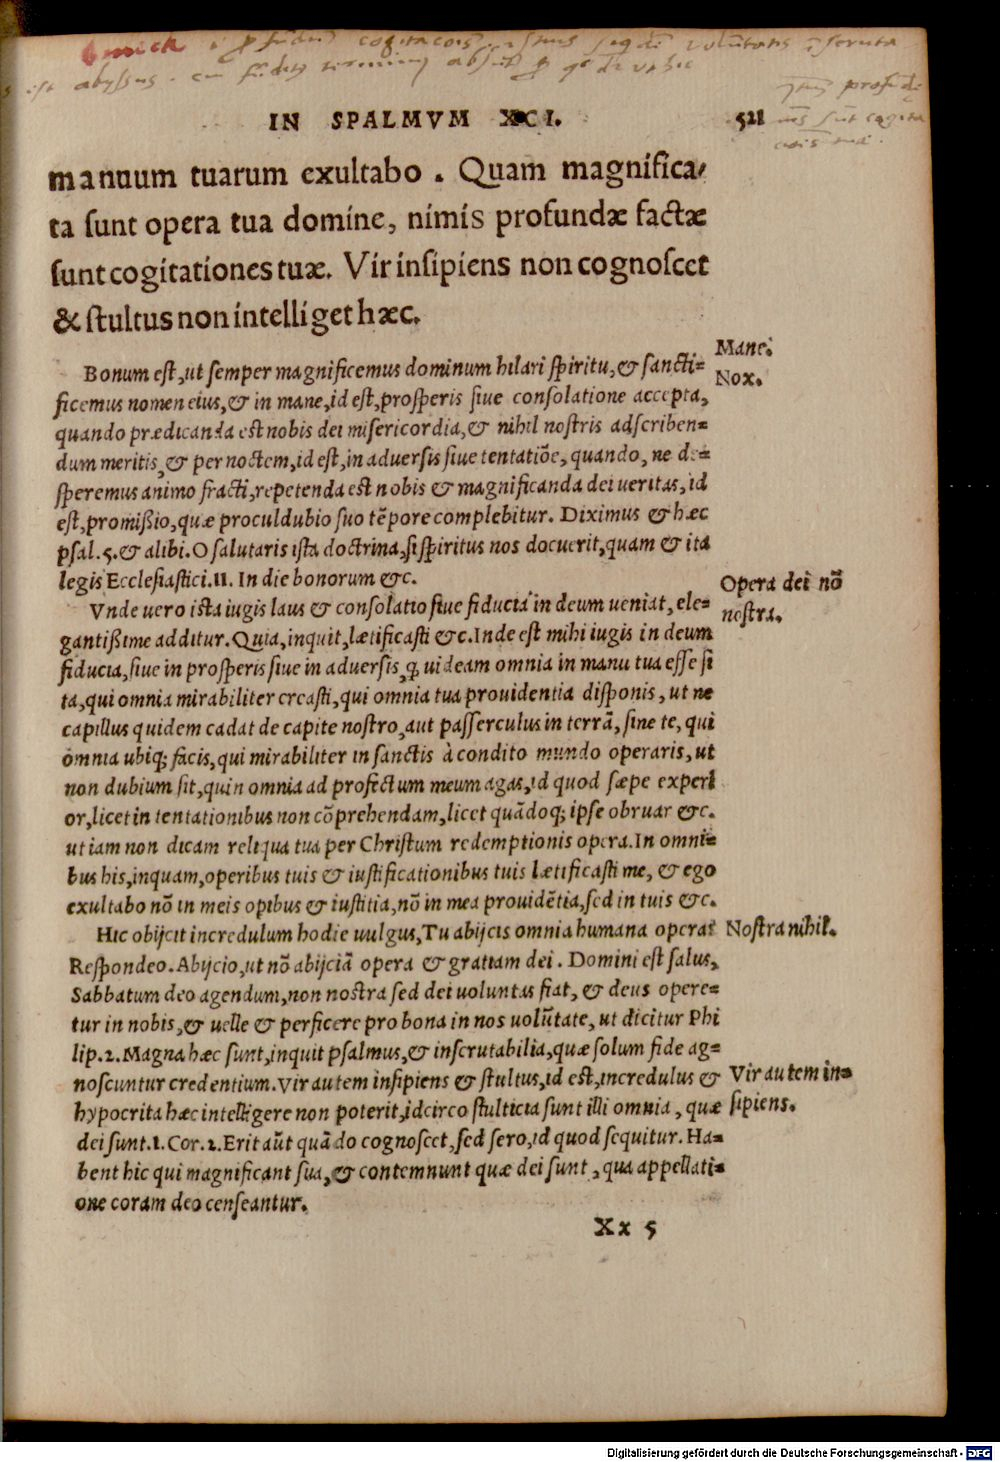 IN SPALMVM XCI. 521
manuum tuarum exultabo . Quam magnifica/
ta ſunt opera tua domine, nimis profundæ factæ
ſunt cogitationes tuæ. Vir inſipiens non cognoſcet
& ſtultus non intelliget hæc.
Mane.
Nox.
Bonum eſt, ut ſemper magnificemus dominum hilari ſpiritu, & ſancti=
ficemus nomen eius, & in mane, id eſt, proſperis ſiue conſolatione accepta,
quando prædicanda est nobis dei miſericordia, & nihil noſtris adſcriben=
dum meritis, & per noctem, id eſt, in aduerſis ſiue tentatiõe, quando, ne de=
ſperemus animo fracti, repetenda est nobis & magnificanda dei ueritas, id
eſt, promißio, quæ proculdubio ſuo tẽpore complebitur. Diximus & hæc
pſal.5. & alibi. O ſalutaris iſta doctrina, ſi ſpiritus nos docuerit, quam & ita
legis Eccleſiaſtici.11. In die bonorum &c.
Opera dei nõ
noſtra.
Vnde uero iſta iugis laus & conſolatio ſiue fiducia in deum ueniat, ele=
gantißime additur. Quia, inquit, lætificaſti &c. Inde est mihi iugis in deum
fiducia, ſiue in proſperis ſiue in aduerſis, ꝙ uideam omnia in manu tua eſſe ſi
ta, qui omnia mirabiliter creaſti, qui omnia tua prouidentia diſponis, ut ne
capillus quidem cadat de capite noſtro, aut paſſerculus in terrã, ſine te, qui
omnia ubiq; facis, qui mirabiliter in ſanctis à condito mundo operaris, ut
non dubium ſit, quin omnia ad profectum meum agas, id quod ſæpe experi
or, licet in tentationibus non cõprehendam, licet quãdoq; ipſe obruar &c.
ut iam non dicam reliqua tua per Chriſtum redemptionis opera. In omni=
bus his, inquam, operibus tuis & iuſtificationibus tuis lætificaſti me, & ego
exultabo nõ in meis opibus & iuſtitia, nõ in mea prouidẽtia, ſed in tuis &c.
Hic obijcit incredulum hodie uulgus, Tu abijcis omnia humana opera? Noſtra nihil.
Reſpondeo. Abijcio, ut nõ abijciã opera & gratiam dei . Domini eſt ſalus,
Sabbatum deo agendum, non noſtra ſed dei uoluntas fiat, & deus opere=
tur in nobis, & uelle & perficere pro bona in nos uolũtate, ut dicitur Phi
lip.2. Magna hæc ſunt, inquit pſalmus, & inſcrutabilia, quæ ſolum fide ag=
noſcuntur credentium. Vir autem inſipiens & ſtultus, id eſt, incredulus & Vir autem in=
hypocrita hæc intelligere non poterit, idcirco ſtulticia ſunt illi omnia, quæ ſipiens.
dei ſunt.1. Cor.2. Erit aũt quãdo cognoſcet, ſed ſero, id quod ſequitur. Ha=
bent hic qui magnificant ſua, & contemnunt quæ dei ſunt, qua appellati=
one coram deo cenſeantur.
Xx 5
Digitalisierung gefördert durch die Deutsche Forschungsgemeinschaft - DFG